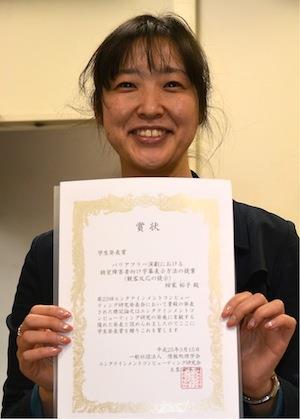 賞状
学生発表賞
バリアフリー演劇における
聴覚障害者向け字幕表示方法の提案
(観客反応の提示)
裕子 殿
第23回エンタテインメントコンピュー
ティング研究発表会において貴殿の発表
された標記論文はエンタテインメントコ
ンピューティング研究の発展に貢献する
優れた発表と認められましたのでここに
学生発表賞を贈りこれを賞します
平成25年3月15日
一般社団法人 情報処理学会
エンタテインメントコンピューティング研究会
主査